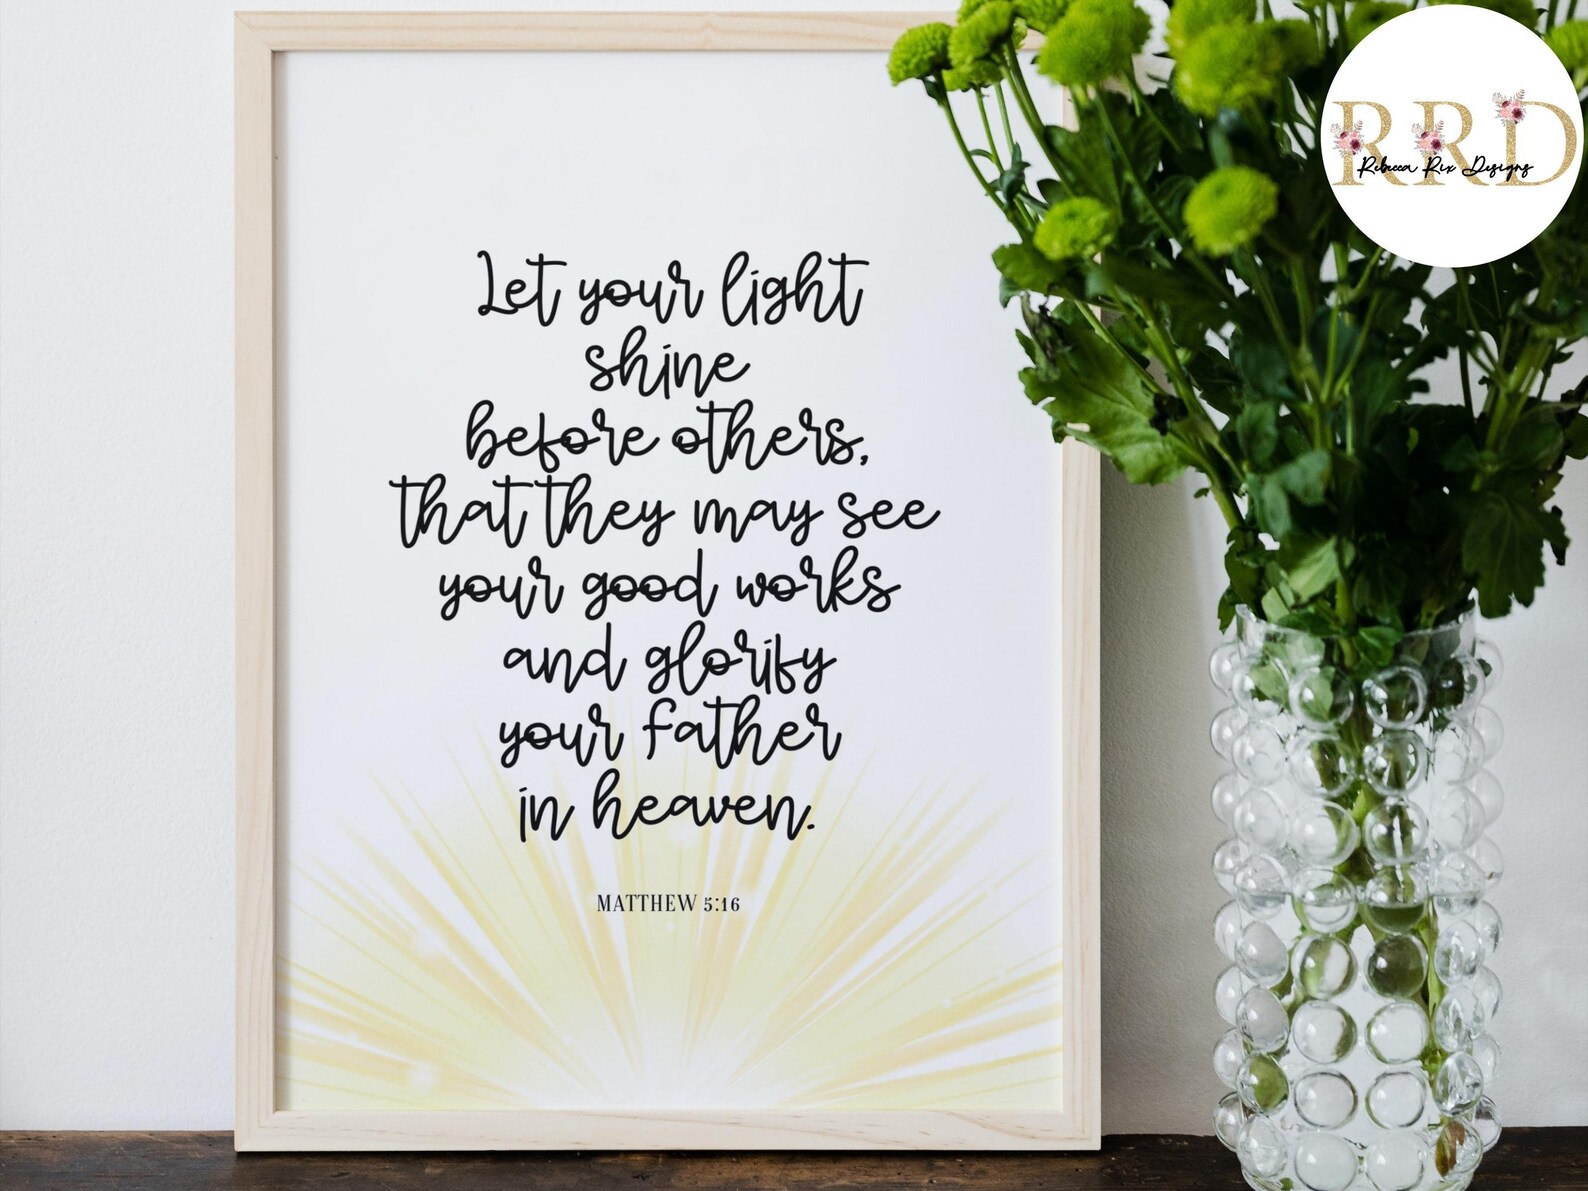 Let your light
shine
before others,
that they may see
your good works
and glorify
your father
in heaven.
MATTHEW 5:16
RRD
Rebecca Rix Designs